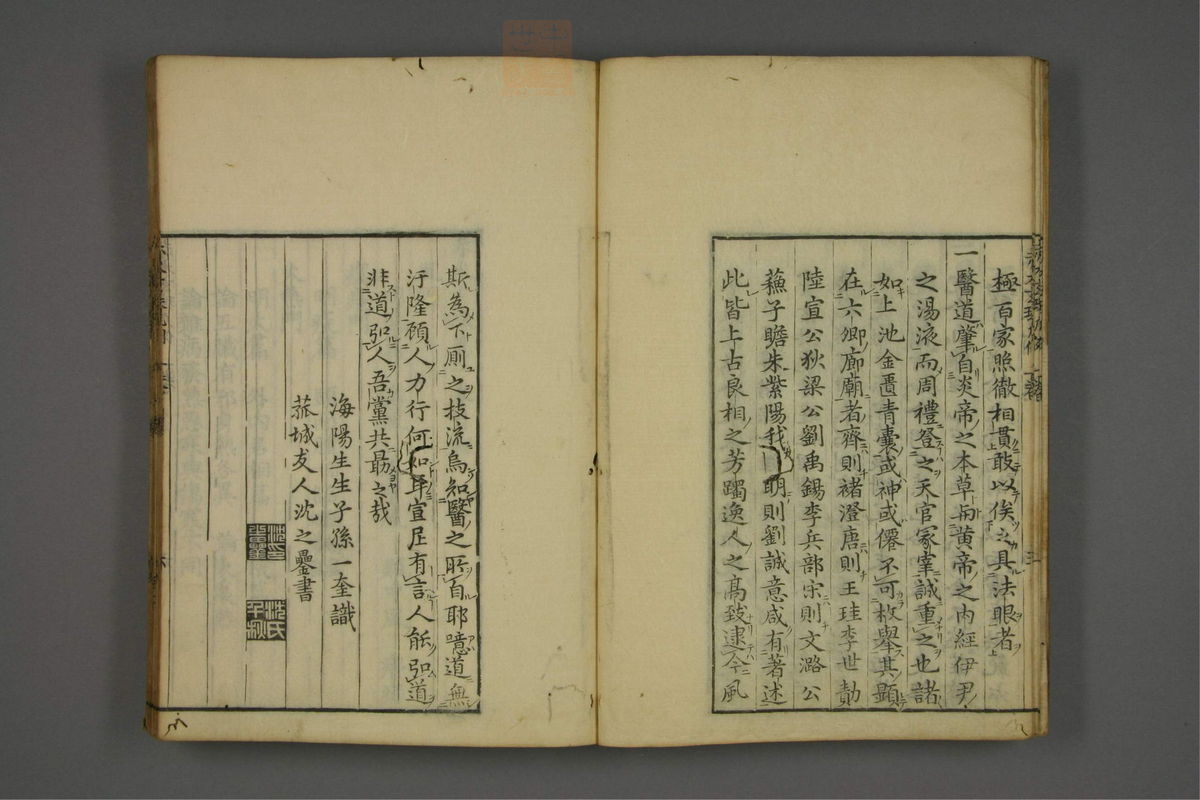 極百家照徹相貫敢以俟之具法眼者
一醫道肇自炎帝之本草昞黄帝之内經伊尹
之湯液而周禮登之天官冢宰誠重之也諸
如上池金匱青囊或神或僊不可枚舉其顯
在六卿廊廟者齊則褚澄唐則王珪李世勣
陸宣公狄梁公劉禹錫李兵部宋則文潞公
蘓子瞻朱紫陽我明則劉誠意咸有著述
此皆上古良相之芳躅逸人之髙致逮今風
斯為下厠之技流烏知醫之所自耶噫道無
汙隆顧人力行何如耳宣尼有言人能弘道
非道弘人吾黨共朂之哉
海陽生生子孫一奎識
菰城友人沈之𨮫書
沈氏